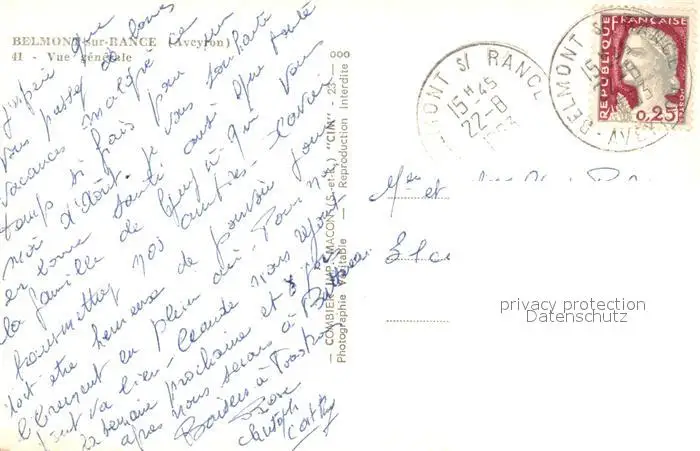 BELMONT-sur-RANCE (Aveyron)
41 - Vue générale
J'espère que
vous passez de bonnes
vacances malgré ce
temps si frais pour un
mois d'août. Je vous souhaite
en bonne santé ainsi que toute
la famille de Guy à qui vous
transmettrez nos amitiés. Xavier
doit être heureux de pouvoir jouer
librement en plein air. Pour n.
tout va bien. Claude nous rejoint
la semaine prochaine et
après nous serons à
Baisers à Tous
Christoph
Cathy
COMBIER IMP. MACON (S.-et-L.) "CIM" - 23 -
Photographie Véritable - Reproduction Interdite
BELMONT S/ RANCE
15 H 45
22-8
1963
BELMONT S/ RANCE
15 H 45
AVEYRON
REPUBLIQUE FRANÇAISE
0,25
et
privacy protection
Datenschutz